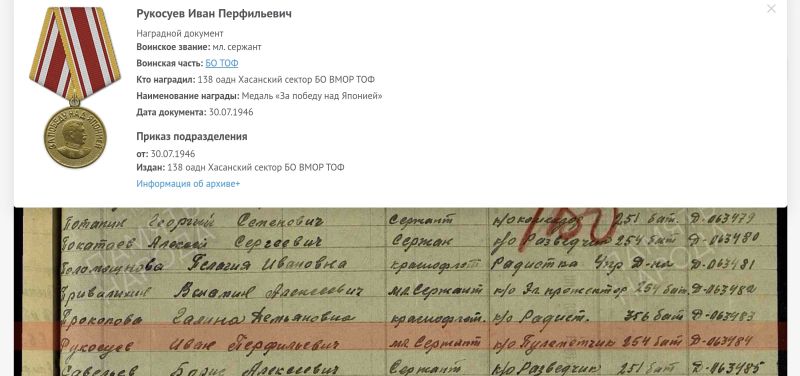 Рукосуев Иван Перфильевич
Наградной документ
Воинское звание: мл. сержант
Воинская часть: БО ТОФ
Кто наградил: 138 оадн Хасанский сектор БО ВМОР ТОФ
Наименование награды: Медаль «За победу над Японией»
Дата документа: 30.07.1946
Приказ подразделения
от: 30.07.1946
Издан: 138 оадн Хасанский сектор БО ВМОР ТОФ
Информация об архиве+
Потапкин Георгий Семенович Сержант к/о 251 бат. Д-063479
Алексей Сергеевич Сержан к/о Разведчик 254 бат. Д-063480
Пелагия Ивановна краснофлот Радистка Упр Д-на Д-063481
Алексеевич мл. Сержант к/о Эл. прожектор 254 бат. Д-063482
Прокопова Галина Демьяновна краснофлот. к/о Радист. 356 бат Д-063483
Рукосуев Иван Перфильевич мл. Сержант к/о Пулеметчик 254 бат Д-063484
Савельев Борис Алексеевич Сержант к/о Разведчик 251 бат Д-063485